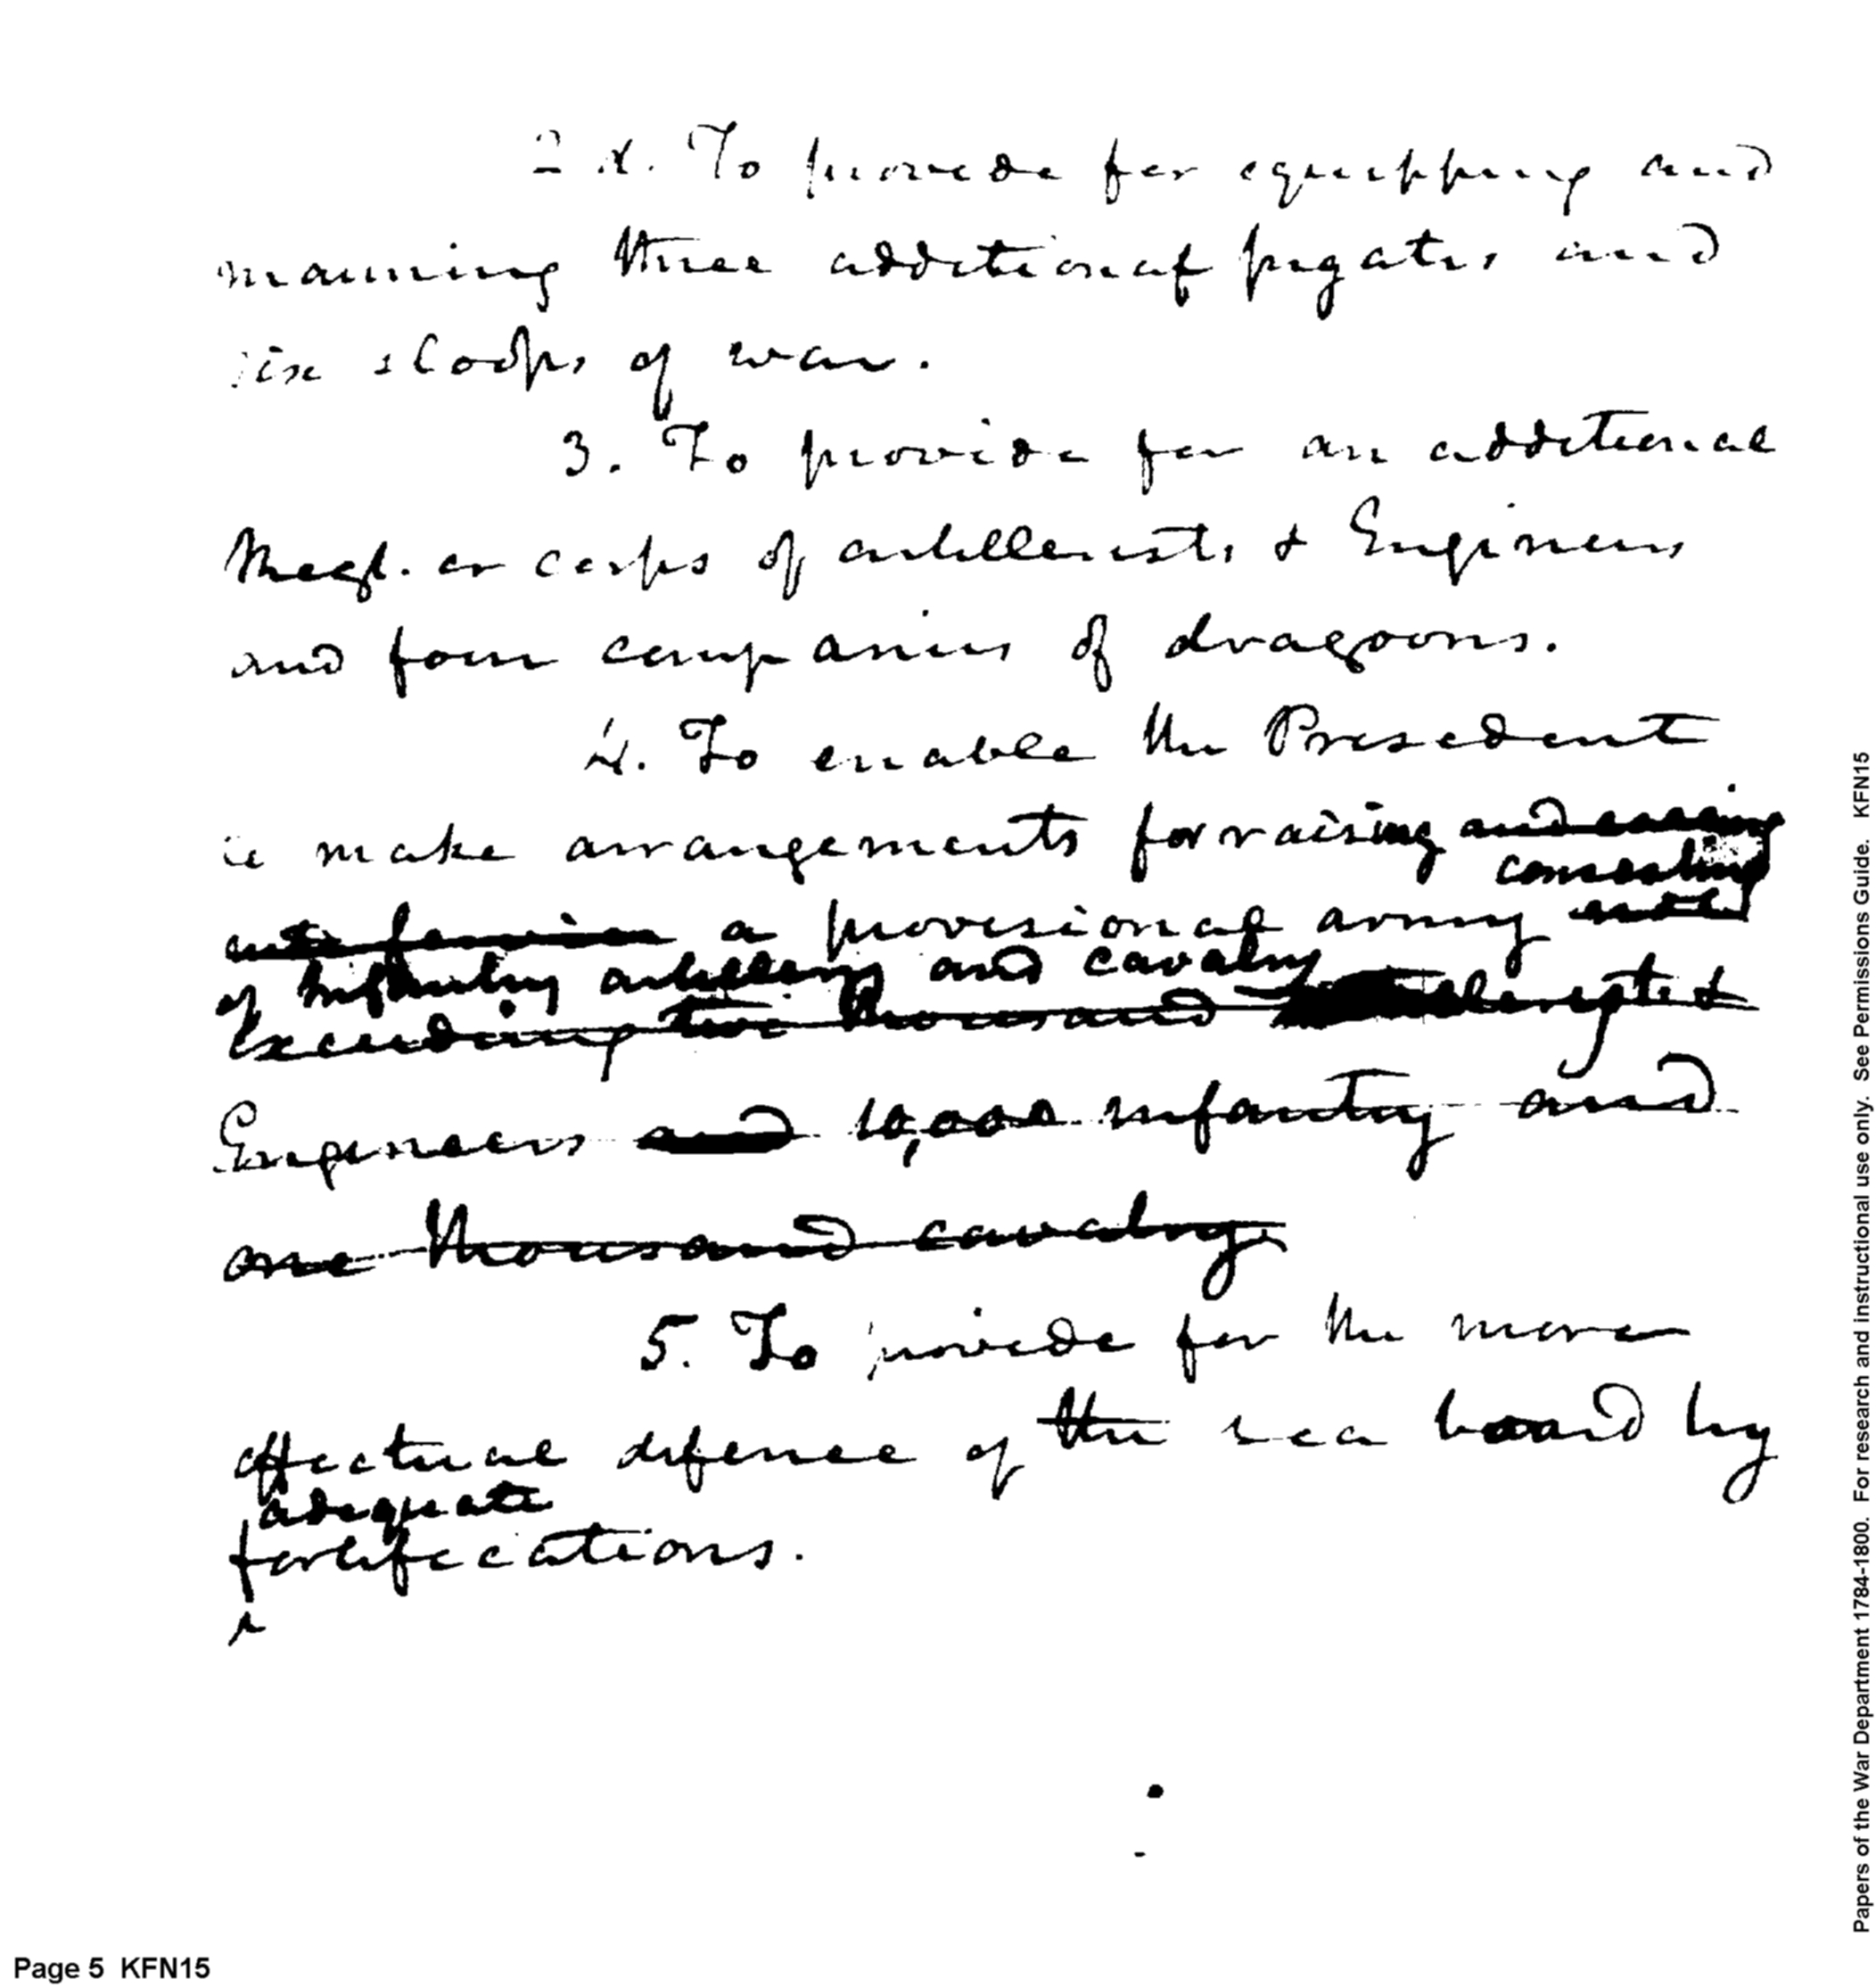 2d. To provide for equipping and
manning three additional frigates and
six sloops of war.
3. To provide for an additional
Regt. or corps of artillerists & Engineers
and four companies of dragoons.
4. To enable the President
to make arrangements for raising and
consisting
a provisional army not
of Infantry artillery and cavalry
Exceeding two thousand artillerists &
Engineers and 10,000 infantry and
one thousand cavalry
5. To provide for the more
effectual defence of the sea board by
adequate
fortifications.
Page 5 KFN15
Papers of the War Department 1784-1800. For research and instructional use only. See Permissions Guide. KFN15